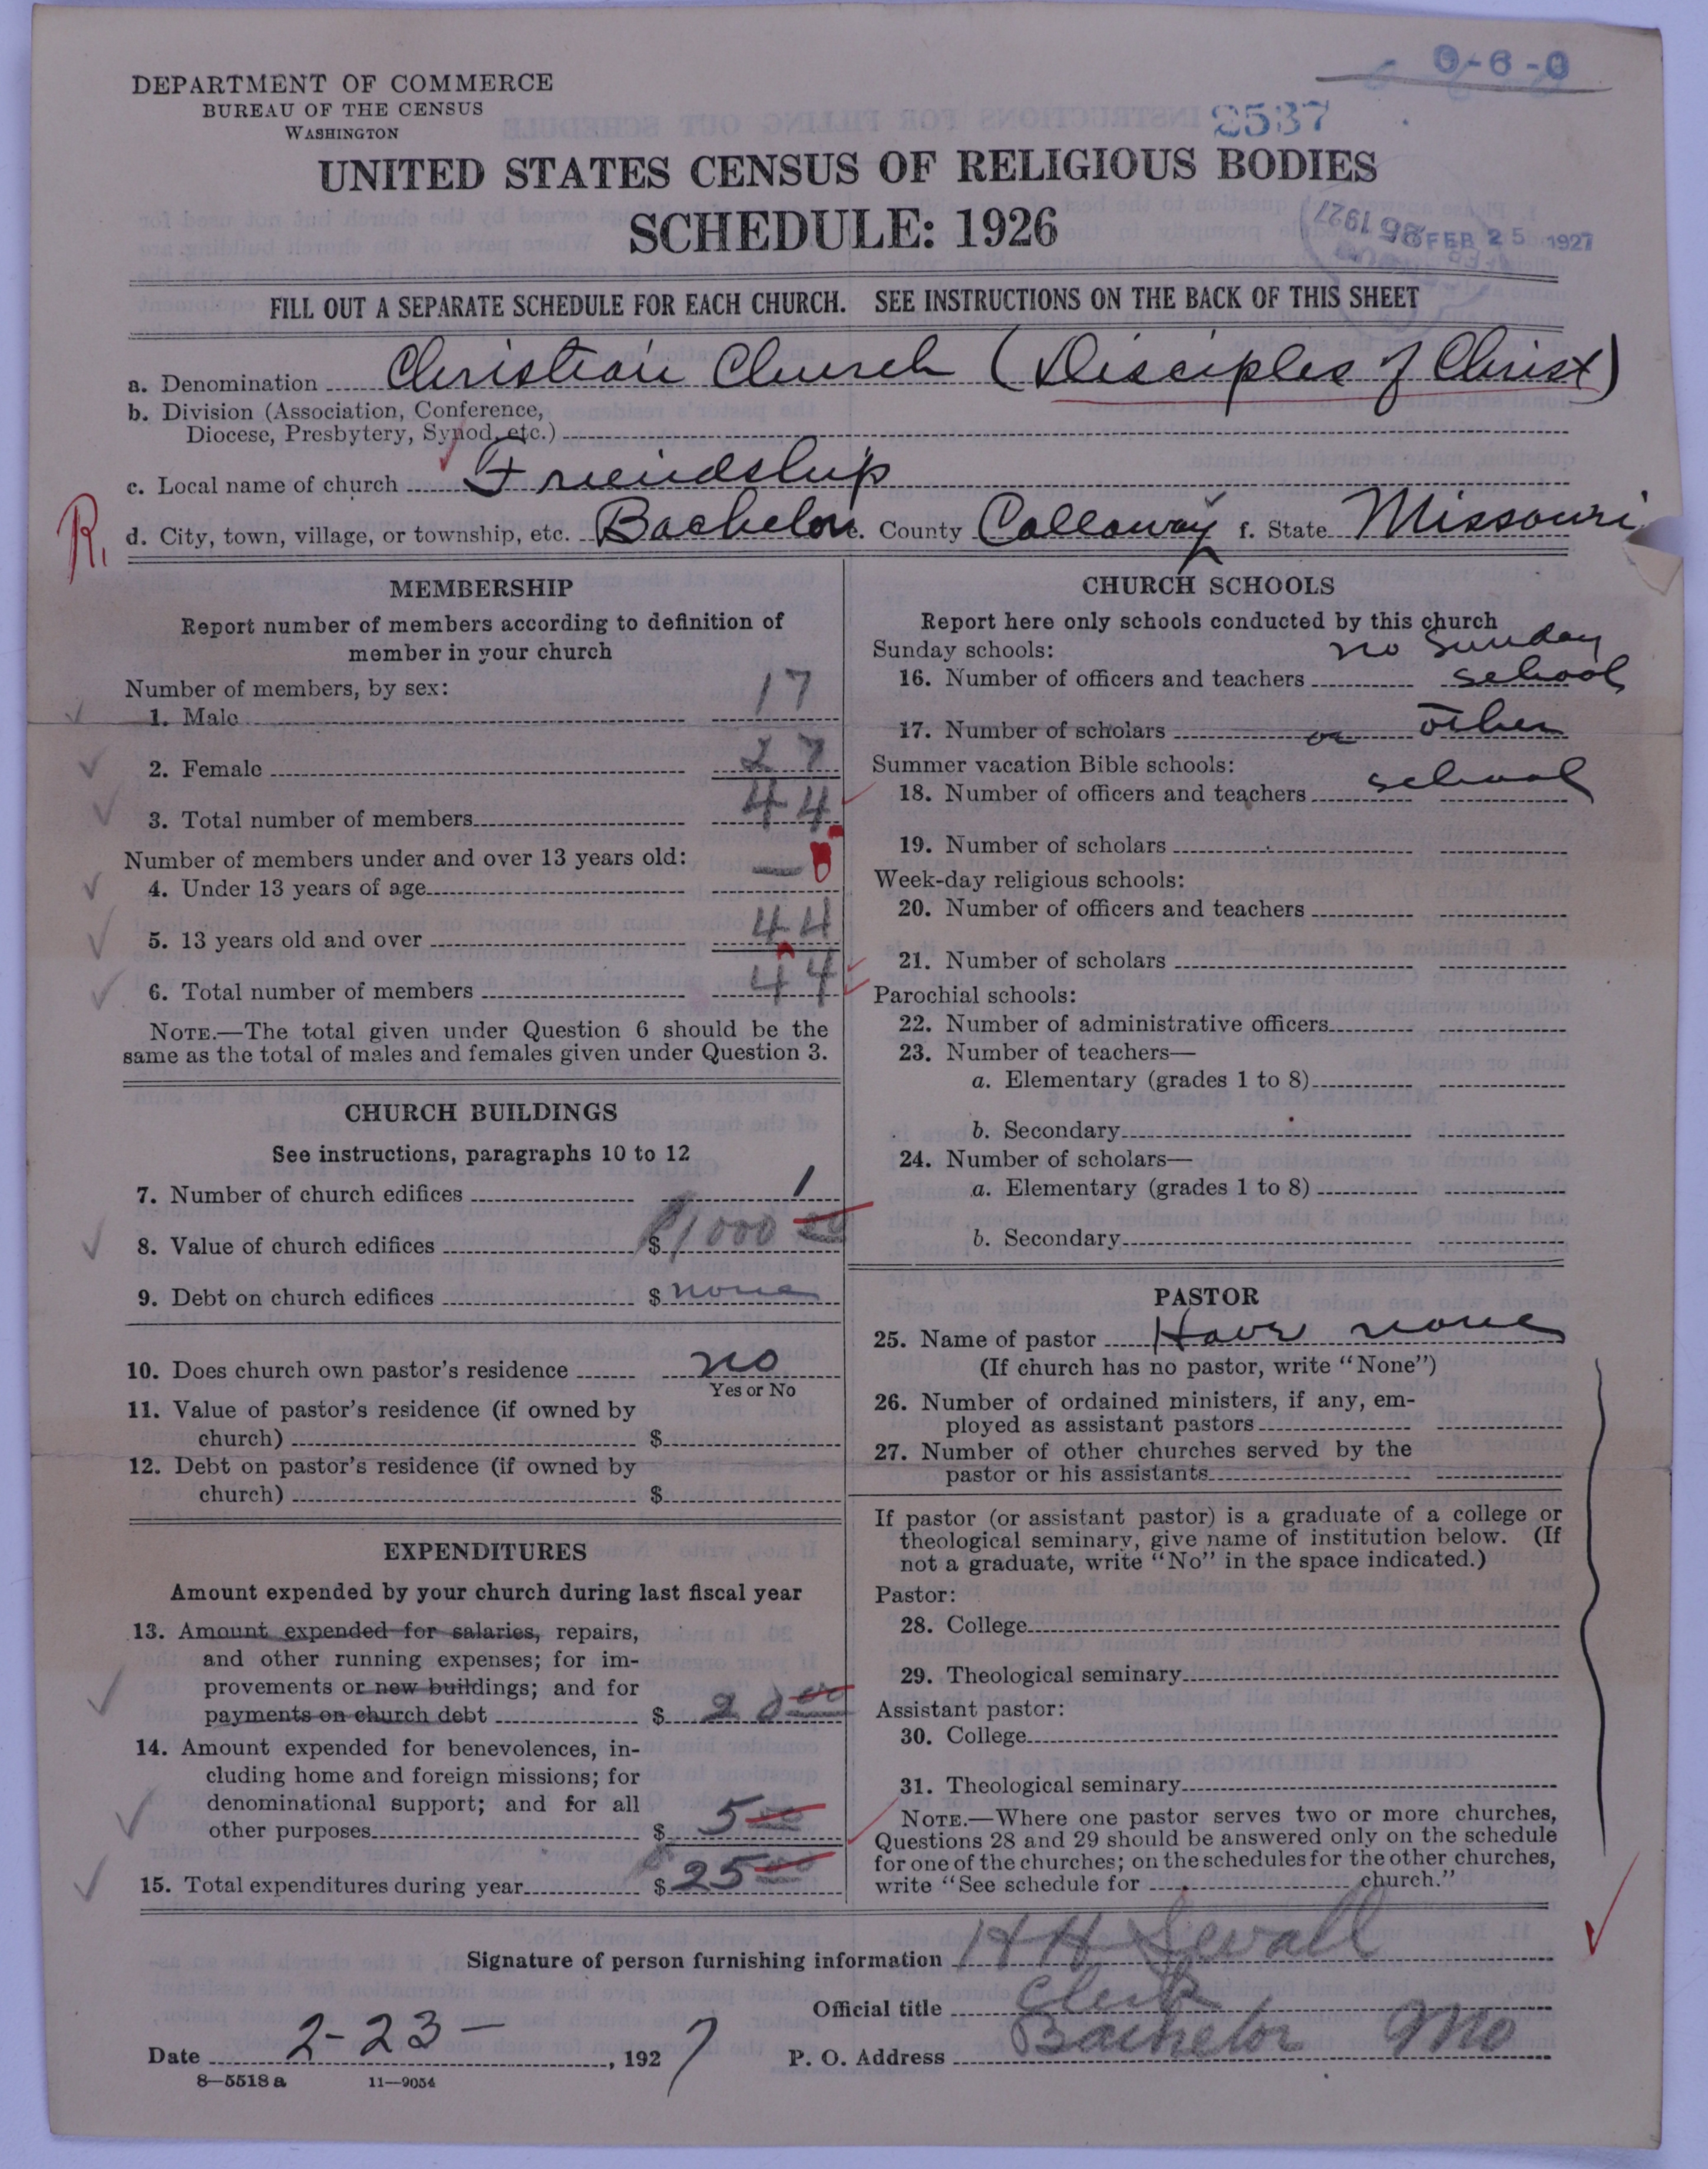 0-6-0
2537
DEPARTMENT OF COMMERCE
BUREAU OF THE CENSUS
WASHINGTON
UNITED STATES CENSUS OF RELIGIOUS BODIES
SCHEDULE: 1926
FEB 25 1927
FILL OUT A SEPARATE SCHEDULE FOR EACH CHURCH. SEE INSTRUCTIONS ON THE BACK OF THIS SHEET
a. Denomination Christian Church (Disciples of Christ)
b. Division (Association, Conference,
Diocese, Presbytery, Synod, etc.)
c. Local name of church Friendship
R. d. City, town, village, or township, etc. Bachelor e. County Callaway f. State Missouri
MEMBERSHIP
Report number of members according to definition of
member in your church
Number of members, by sex:
1. Male 17
2. Female 27
3. Total number of members 44
Number of members under and over 13 years old:
4. Under 13 years of age — 0
5. 13 years old and over 44
6. Total number of members 44
NOTE.—The total given under Question 6 should be the
same as the total of males and females given under Question 3.
CHURCH BUILDINGS
See instructions, paragraphs 10 to 12
7. Number of church edifices 1
8. Value of church edifices $ 1000 00
9. Debt on church edifices $ none
10. Does church own pastor's residence no
Yes or No
11. Value of pastor's residence (if owned by
church) $
12. Debt on pastor's residence (if owned by
church) $
EXPENDITURES
Amount expended by your church during last fiscal year
13. Amount expended for salaries, repairs,
and other running expenses; for im-
provements or new buildings; and for
payments on church debt $ 20 00
14. Amount expended for benevolences, in-
cluding home and foreign missions; for
denominational support; and for all
other purposes $ 5 00
15. Total expenditures during year $ 25 00
CHURCH SCHOOLS
Report here only schools conducted by this church
Sunday schools: no Sunday
16. Number of officers and teachers school
17. Number of scholars or other
Summer vacation Bible schools:
18. Number of officers and teachers school
19. Number of scholars
Week-day religious schools:
20. Number of officers and teachers
21. Number of scholars
Parochial schools:
22. Number of administrative officers
23. Number of teachers—
a. Elementary (grades 1 to 8)
b. Secondary
24. Number of scholars—
a. Elementary (grades 1 to 8)
b. Secondary
PASTOR
25. Name of pastor Have none
(If church has no pastor, write "None")
26. Number of ordained ministers, if any, em-
ployed as assistant pastors
27. Number of other churches served by the
pastor or his assistants
If pastor (or assistant pastor) is a graduate of a college or
theological seminary, give name of institution below. (If
not a graduate, write "No" in the space indicated.)
Pastor:
28. College
29. Theological seminary
Assistant pastor:
30. College
31. Theological seminary
NOTE.—Where one pastor serves two or more churches,
Questions 28 and 29 should be answered only on the schedule
for one of the churches; on the schedules for the other churches,
write "See schedule for church."
Signature of person furnishing information H H Sewall
Official title Clerk
Date 2-23-, 1927 P. O. Address Bachelor Mo
8-5518 a 11-9054